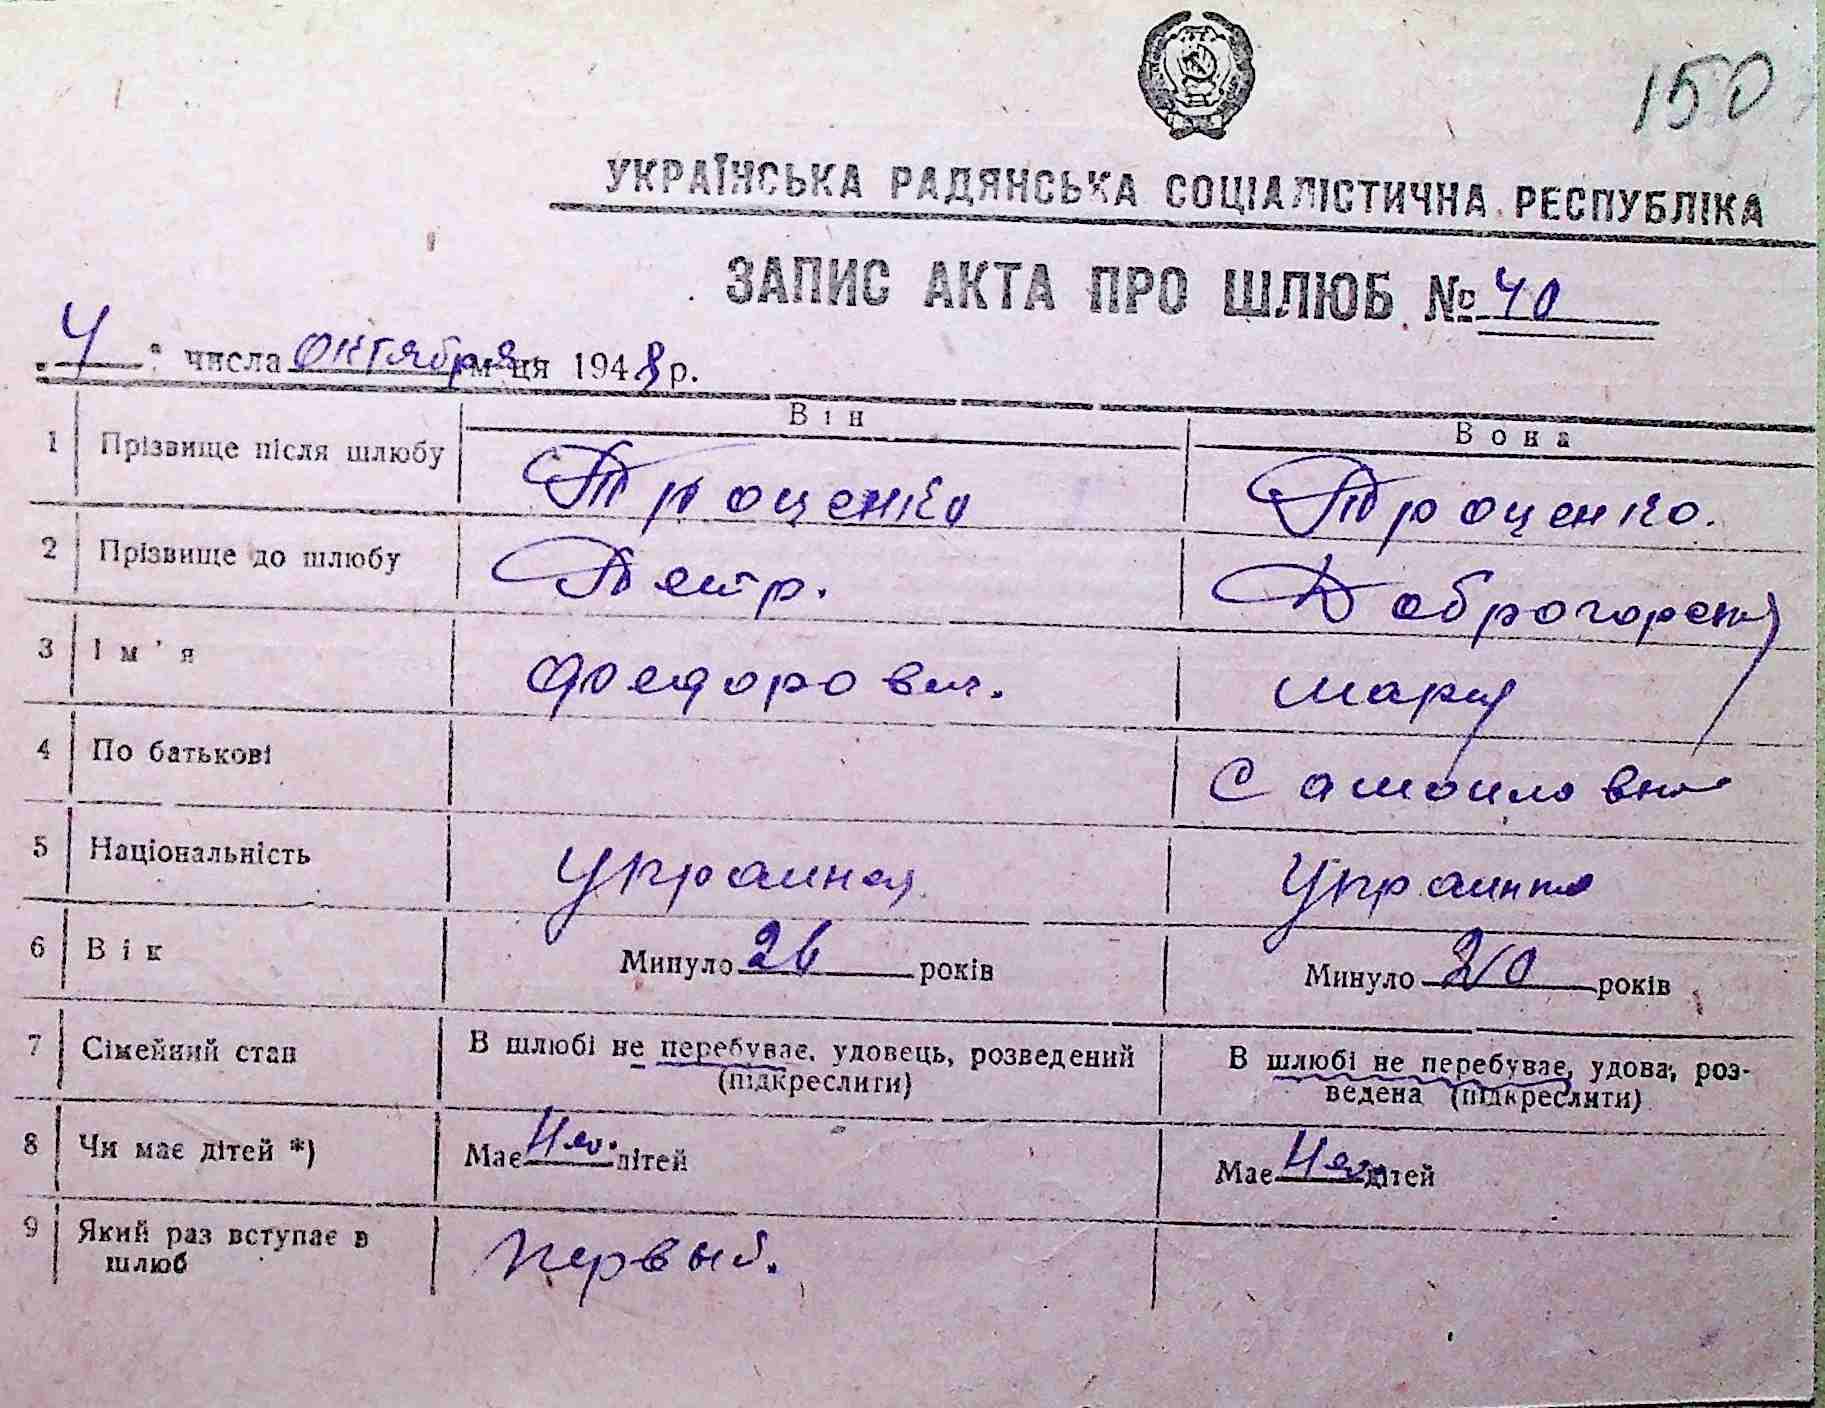 150
УКРАЇНСЬКА РАДЯНСЬКА СОЦІАЛІСТИЧНА РЕСПУБЛІКА
ЗАПИС АКТА ПРО ШЛЮБ № 40
"4" числа октября м-ця 1948 р.
Він Вона
1 Прізвище після шлюбу Троценко Троценко.
2 Прізвище до шлюбу Петр.
3 Ім'я Федорович. Мария
4 По батькові Самоиловна
5 Національність
6 Вік Минуло 26 років Минуло 20 років
7 Сімейний стан В шлюбі не перебуває, удовець, розведений (підкреслити) В шлюбі не перебуває, удова, роз-
ведена (підкреслити)
8 Чи має дітей *) Має дітей Має дітей
9 Який раз вступає в шлюб первый.